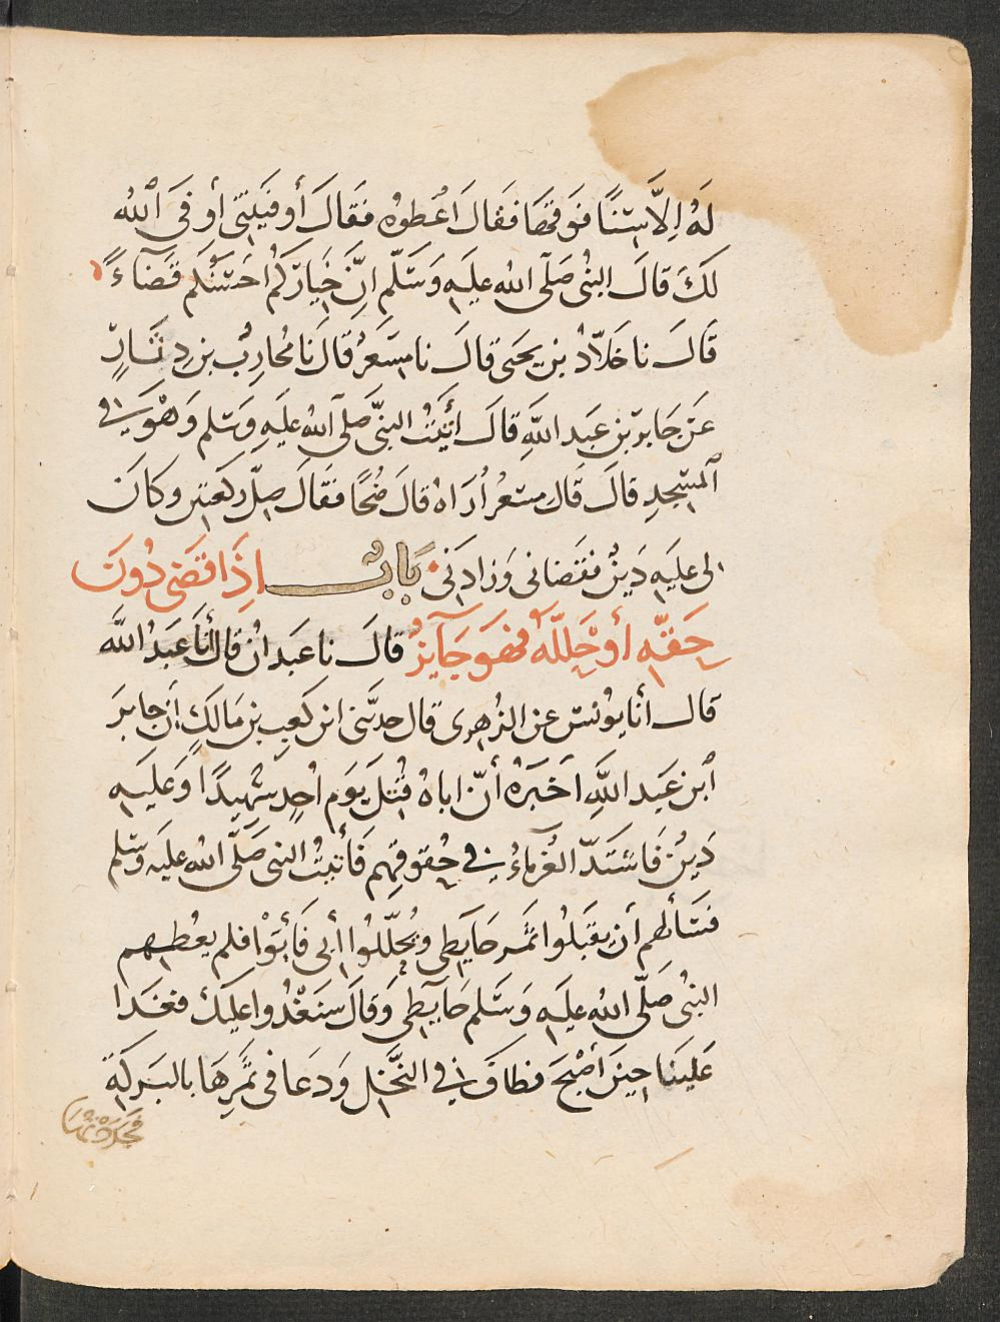 لَهُ اِلَّا سِنًّا فَوقَهَا فقالَ اعْطوهُ فَقَالَ أَوفَيتَنِى أوفَى اَللهُ
لَكَ قالَ النبىُّ صَلَّى اللهُ عليَهِ وَسَلَّم اِنَّ خِيَارَكُم احَسَنُكُم قَضَآءً
قَالَ نا خَلَّادُ بن يحيَى قالَ نا مِسَعَرٌ قَالَ نَا مُحَارِبُ بن دِثَارٍ
عَن جَابرِ بن عَبدِ اللَّهِ قالَ اتَيْتُ النبىَّ صَلَّى اللهُ عليَهِ وَسَلم وَهْوَ فِى
اَلمسَجِدِ قالَ قَالَ مسعرٌ أُرَاهُ قالَ ضُحًا فقَالَ صَلِّ ركعتين وكانَ
لى عليَهِ دَينٌ فقَضَانى وَزادَنى بَابٌ اِذَا قَضَى دُونَ
حَقِّهِ أوْ حَلَّلَهُ فهَوَ جَآيزٌ قالَ نا عَبدانُ قالَ أنَا عَبدُ اللَّه
قال أنا يونُسُ عن الزُهرِى قال حدثَّنى ابن كَعبِ بن مَالكٍ أنَّ جابرَ
اَبن عَبد اللَّهِ اخَبَرَهُ أنَّ اباهُ قُتلَ يَومَ احُدٍ شَهِيدًا وَعَليَهِ
دَينٌ فَاشتَدَّ الغُرَمَاءُ فِى حُقوقِهِم فَأتيتُ النبىَّ صَلَّى اللهُ عليَهِ وَسَلم
فَسَأَلهم أن يقبَلُوا تَمَر حَايطى ويُحَلِّلُوا أبى فَأبَوْا فلم يعُطِهم
النبىُّ صَلَّى اللهُ عليَهِ وَسَلم حَايطِى وَقالَ سَنَغْدُوا عليكَ فغَدا
عَلينا حينَ أصْبَحَ فطافَ فِى النَّخلِ وَدعَا فى ثَمَرِهَا بالبَركَةِ
فجَدَدْتُهَا